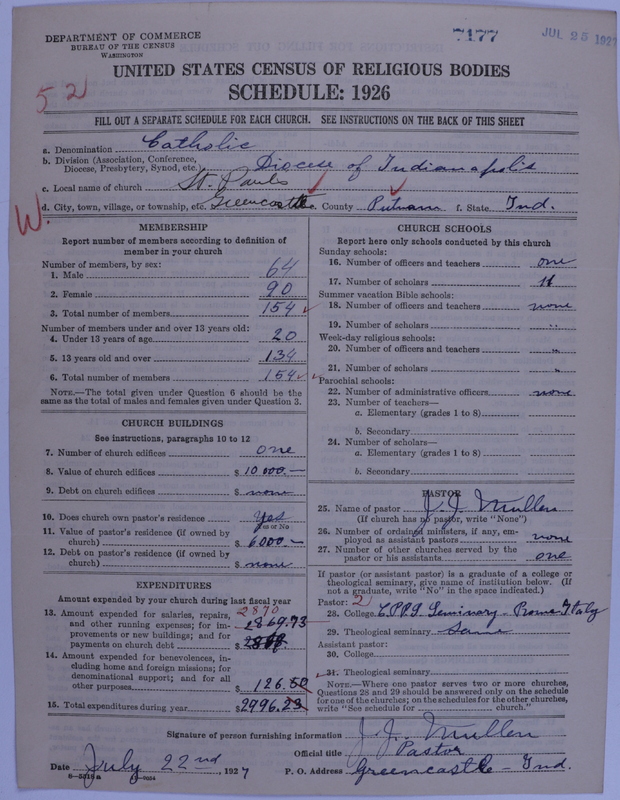 DEPARTMENT OF COMMERCE
BUREAU OF THE CENSUS
WASHINGTON
7177
JUL 25 1927
UNITED STATES CENSUS OF RELIGIOUS BODIES
SCHEDULE: 1926
52
FILL OUT A SEPARATE SCHEDULE FOR EACH CHURCH. SEE INSTRUCTIONS ON THE BACK OF THIS SHEET
a. Denomination Catholic
b. Division (Association, Conference, Diocese, Presbytery, Synod, etc.) Diocese of Indianapolis
c. Local name of church St. Pauls
d. City, town, village, or township, etc. Greencastle e. County Putnam f. State Ind.
W.
MEMBERSHIP
Report number of members according to definition of
member in your church
Number of members, by sex:
1. Male 64
2. Female 90
3. Total number of members 154
Number of members under and over 13 years old:
4. Under 13 years of age 20
5. 13 years old and over 134
6. Total number of members 154
NOTE.—The total given under Question 6 should be
same as the total of males and females given under Question 3.
CHURCH BUILDINGS
See instructions, paragraphs 10 to 12
7. Number of church edifices one
8. Value of church edifices $ 10 000.—
9. Debt on church edifices $ none
10. Does church own pastor's residence Yes
Yes or No
11. Value of pastor's residence (if owned by
church) $ 6000.—
12. Debt on pastor's residence (if owned by
church) $ none
EXPENDITURES
Amount expended by your church during last fiscal year
2870
13. Amount expended for salaries, repairs,
and other running expenses; for im-
provements or new buildings; and for
payments on church debt $ 2869.73
14. Amount expended for benevolences, in-
cluding home and foreign missions; for
denominational support; and for all
other purposes $ 126.50
15. Total expenditures during year $ 2996.23
CHURCH SCHOOLS
Report here only schools conducted by this church
Sunday schools:
16. Number of officers and teachers one
17. Number of scholars
Summer vacation Bible schools:
18. Number of officers and teachers none
19. Number of scholars "
Week-day religious schools:
20. Number of officers and teachers "
21. Number of scholars "
Parochial schools:
22. Number of administrative officers none
23. Number of teachers—
a. Elementary (grades 1 to 8)
b. Secondary
24. Number of scholars—
a. Elementary (grades 1 to 8)
b. Secondary
PASTOR
25. Name of pastor J. J. Mullen
(If church has no pastor, write "None")
26. Number of ordained ministers, if any, em-
ployed as assistant pastors none
27. Number of other churches served by the
pastor or his assistants one
If pastor (or assistant pastor) is a graduate of a college or
theological seminary, give name of institution below. (If
not a graduate, write "No" in the space indicated.)
Pastor: 2
28. College Seminary - Rome Italy
29. Theological seminary Same
Assistant pastor:
30. College
31. Theological seminary
NOTE.—Where one pastor serves two or more churches,
Questions 28 and 29 should be answered only on the schedule
for one of the churches; on the schedules for the other churches,
write "See schedule for church."
Signature of person furnishing information J. J. Mullen
Official title Pastor
Date July 22nd, 1927 P. O. Address Greencastle - Ind.